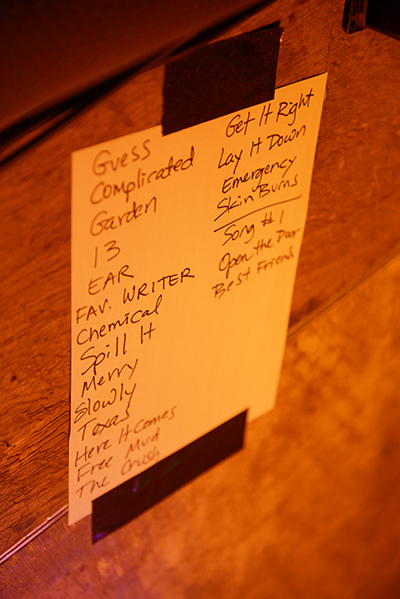 Guess
Complicated
Garden
13
EAR
FAV. WRITER
Chemical
Spill It
Merry
Slowly
Texas
Here It Comes
Free Mud
The Crush
Get It Right
Lay It Down
Emergency
Skin Burns
Song #1
Open the Door
Best Friend